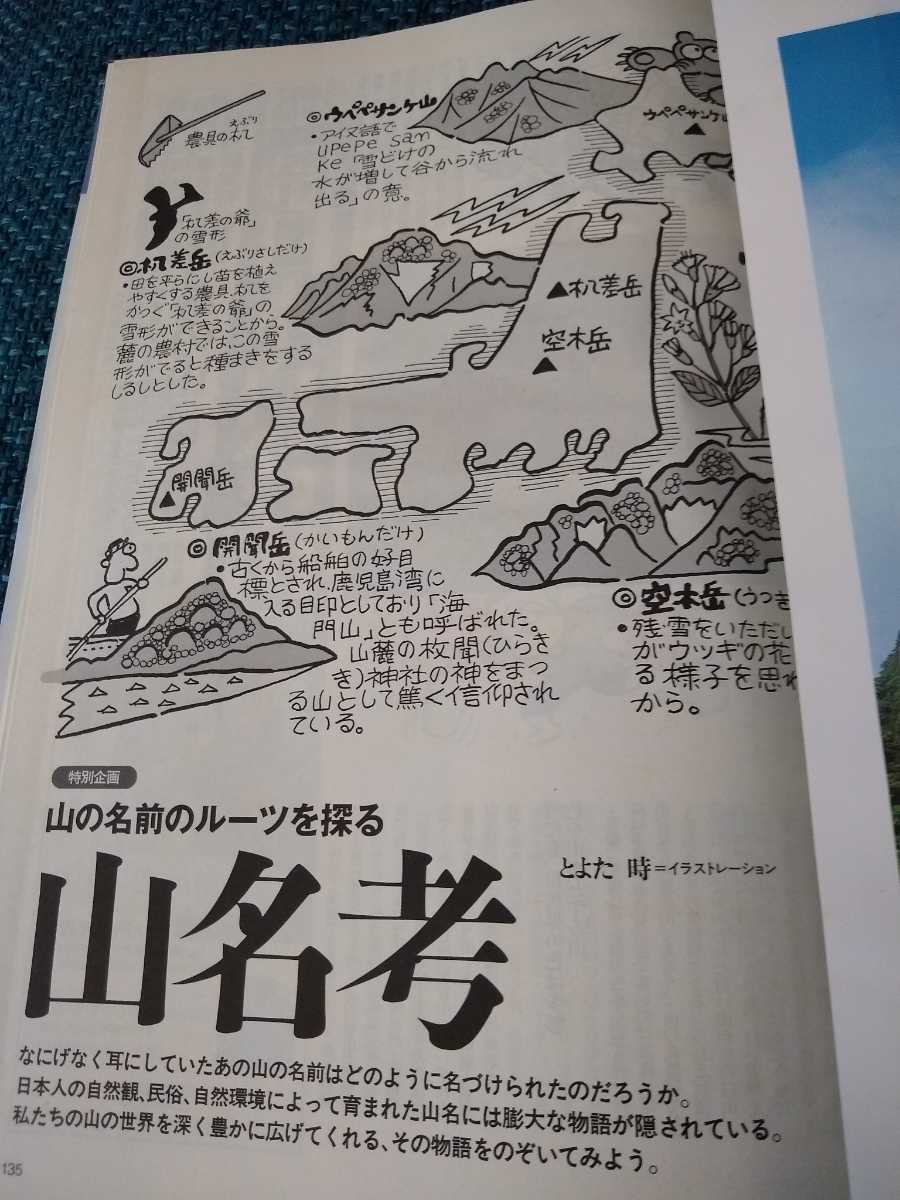 えぶり
農具の杁
◎ウペペサンケ山
・アイヌ語で
UPePe Sam
Ke「雪どけの
水が増して谷から流れ
出る」の意。
ウペペサンケ山
「杁差の爺」
の雪形
◎杁差岳(えぶりさしだけ)
・田を平らにし苗を植え
やすくする農具、杁を
かつぐ「杁差の爺」の、
雪形ができることから。
麓の農村では、この雪
形がでると種まきをする
しるしとした。
▲杁差岳
空木岳
▲
▲開聞岳
◎開聞岳(かいもんだけ)
・古くから船舶の好目
標とされ、鹿児島湾に
入る目印としており「海
門山」とも呼ばれた。
山麓の枚聞(ひらき
き)神社の神をまつ
る山として篤く信仰され
ている。
◎空木岳(うつき
・残雪をいただし
がウツギの花
る様子を思わ
から。
特別企画
山の名前のルーツを探る
山名考
とよた 時=イラストレーション
なにげなく耳にしていたあの山の名前はどのように名づけられたのだろうか。
日本人の自然観、民俗、自然環境によって育まれた山名には膨大な物語が隠されている。
私たちの山の世界を深く豊かに広げてくれる、その物語をのぞいてみよう。
135